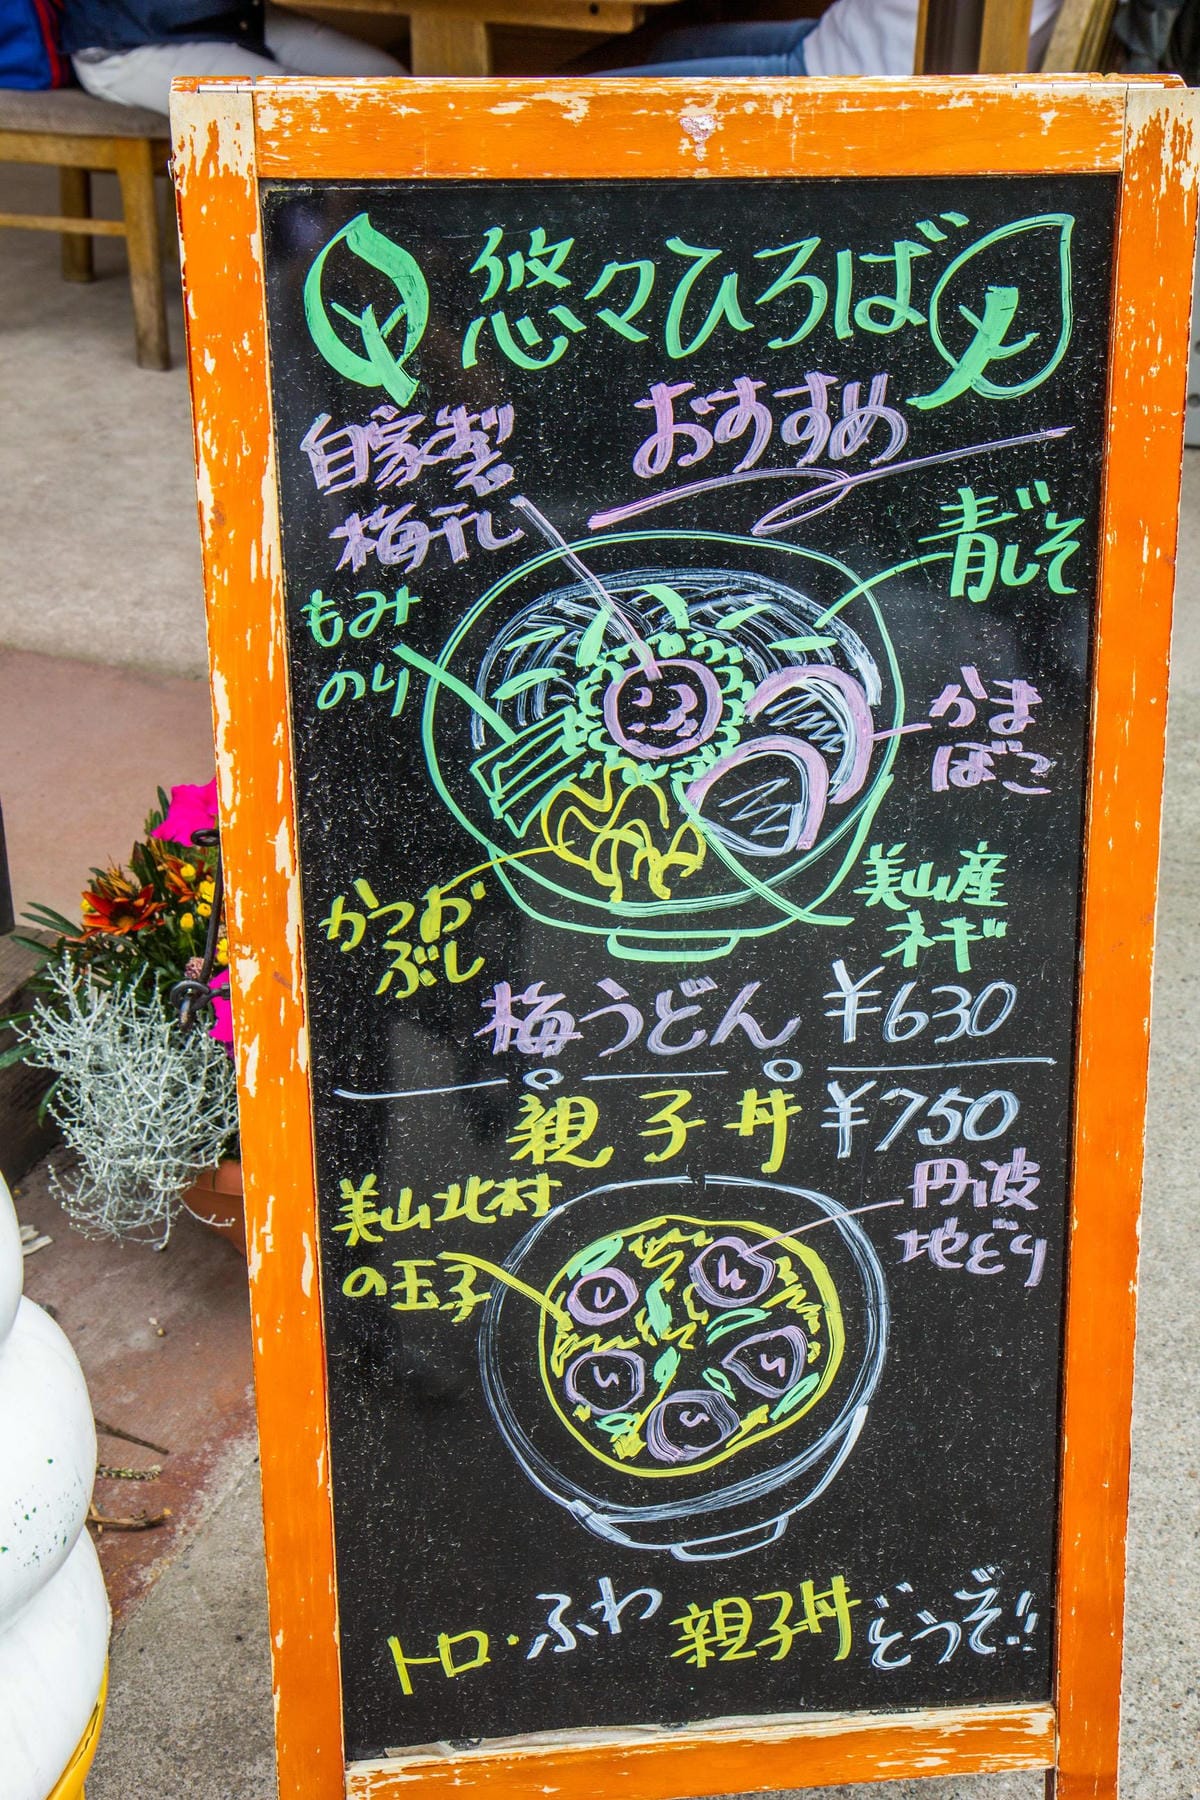 悠々ひろば
おすすめ
自家製
梅干し
青じそ
もみ
のり
かま
ぼこ
かつお
ぶし
美山産
ネギ
梅うどん ¥630
親子丼 ¥750
美山北村
の玉子
丹波
地どり
トロ・ふわ 親子丼 どうぞ!!